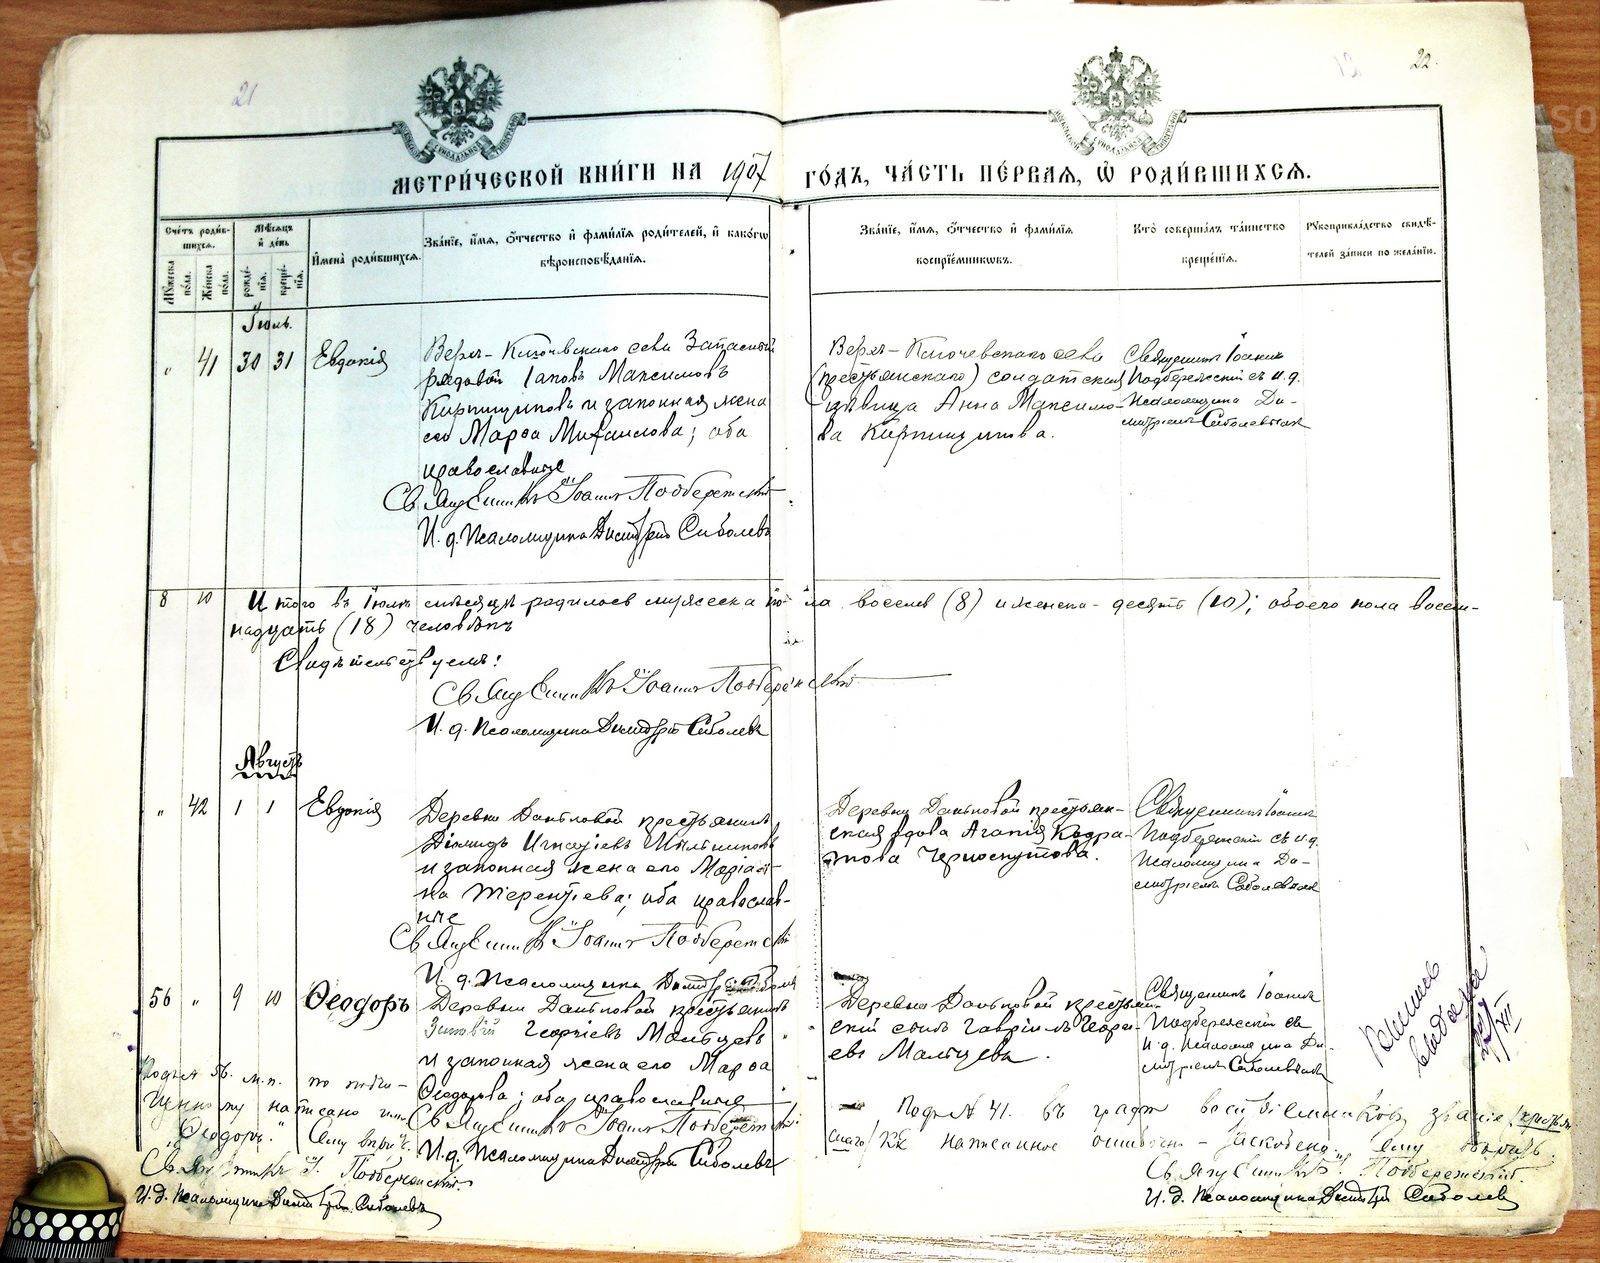 21
22.
МЕТРИ́ЧЕСКОЙ КНИ́ГИ НА 1907 ГО́ДЪ, ЧА́СТЬ ПЕ́РВАЯ, Ѡ РОДИ́ВШИХСЯ.
Сче́тъ роди́вшихся.
Му́жеска по́ла.
Же́нска по́ла.
Мѣ́сяцъ и де́нь
рожде́нія.
креще́нія.
И́мена роди́вшихся.
Зва́ніе, и́мя, о́тчество и фами́лія роди́телей, и како́гѡ
вѣроисповѣ́данія.
Зва́ніе, и́мя, о́тчество и фами́лія
воспріе́мниковъ.
Кто̀ соверша́лъ та́инство
креще́нія.
Рукоприкла́дство свидѣ́-
телей за́писи по жела́нію.
Іюль.
„ 41 30 31 Евдокія
Верхъ-Ключевскаго села Запасный
рядовой Іаковъ Максимовъ
Кирпищиковъ и законная жена
его Марѳа Михаилова; оба
православные
Священникъ Іоаннъ Подбережскій
И. д. Псаломщика Димитрій Соболевъ
Верхъ-Ключевскаго села
(крестьянскаго) солдатская
дѣвица Анна Максимо-
ва Кирпищикова.
Священникъ Іоаннъ
Подбережскій съ и. д.
Псаломщика Ди-
митріемъ Соболевымъ
8 10 Итого въ Іюлѣ мѣсяцѣ родилось мужеска пола восемь (8) и женска - десять (10); обоего пола восем-
надцать (18) человѣкъ
Свидѣтельствуемъ:
Священникъ Іоаннъ Подбережскій
И. д. Псаломщика Димитрій Соболевъ
Августъ
„ 42 1 1 Евдокія
Деревни Даньковой крестьянинъ
Діомидъ Игнатіевъ Мыльниковъ
и законная жена его Маріам-
на Терентіева; оба православ-
ные
Священникъ Іоаннъ Подбережскій
И. д. Псаломщика Димитрій
Деревни Даньковой крестьян-
ская вдова Агапія Кодра-
това Черноскутова.
Священникъ Іоаннъ
Подбережскій съ и. д.
Псаломщика Ди-
митріемъ Соболевымъ
56 „ 9 10 Ѳеодоръ
Деревни Даньковой крестьянинъ
Зиновій Георгіевъ Мальцевъ
и законная жена его Марѳа
Ѳеодорова; оба православные
Священникъ Іоаннъ Подбережскій
И. д. Псаломщика Димитрій Соболевъ
Деревни Даньковой крестьян-
скій сынъ Гавріилъ Георгі-
евъ Мальцевъ.
Священникъ Іоаннъ
Подбережскій съ
И. д. Псаломщика Ди-
митріемъ Соболевымъ
Подъ № 56. м. п. по подчи-
щенному написано имя
„Ѳеодоръ." Сему вѣрить.
Священникъ І. Подбережскій.
И. д. Псаломщика Димитрій Соболевъ
Подъ № 41. въ графѣ воспріемниковъ званіе (крестьян-
скаго) какъ написанное ошибочно - исключено. Сему вѣрить.
Священникъ І. Подбережскій.
И. д. Псаломщика Димитрій Соболевъ